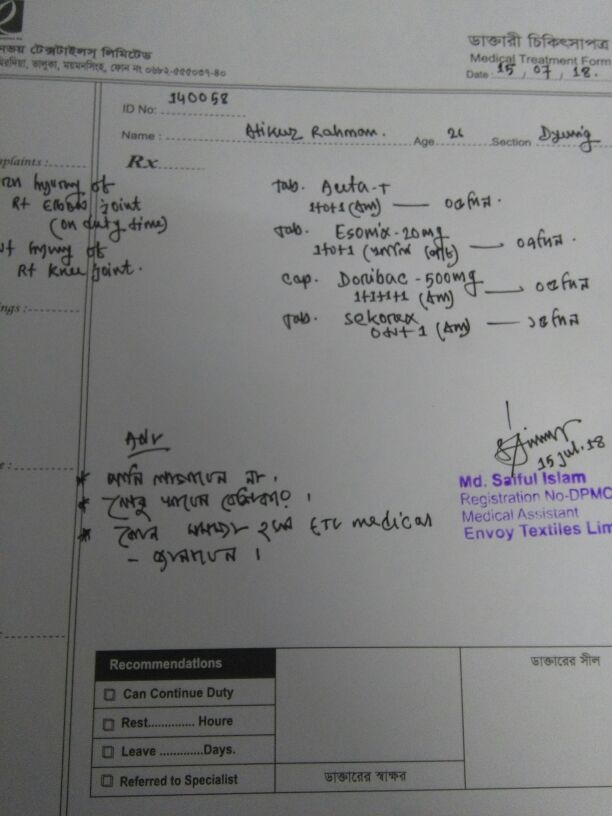 টেক্সটাইলস লিমিটেড
ভালুকা, ময়মনসিংহ, ফোন নং ০৬৮২-৫৫৫০৩৭-৪০
ডাক্তারী চিকিৎসাপত্র
Medical Treatment Form
Date: 15 / 07 / 18.
ID No: 140058
Name: Atikur Rahman. Age 26 Section Dyeing
Rx
Injury of
Rt Elbow joint
(on duty time)
Injury of
Rt Knee joint.
Tab.
1+0+1 (Am) — ০৫ দিন.
Tab. Esomix-20mg
1+0+1 — ০৭ দিন.
Cap. Doribac-500mg
1+1+1+1 (Am) — ০৫ দিন
Tab. sekorax
0+0+1 (Am) — ১৫ দিন
Adv
* পানি লাগাবেন না।
* লেবু খাবেন
* কোন সমস্যা হলে ETL medical
- জানাবেন।
15 Jul. 18
Md. Saiful Islam
Registration No-DPMC
Medical Assistant
Envoy Textiles Lim
Recommendations
Can Continue Duty
Rest.............. Houre
Leave ............Days.
Referred to Specialist
ডাক্তারের স্বাক্ষর
ডাক্তারের সীল